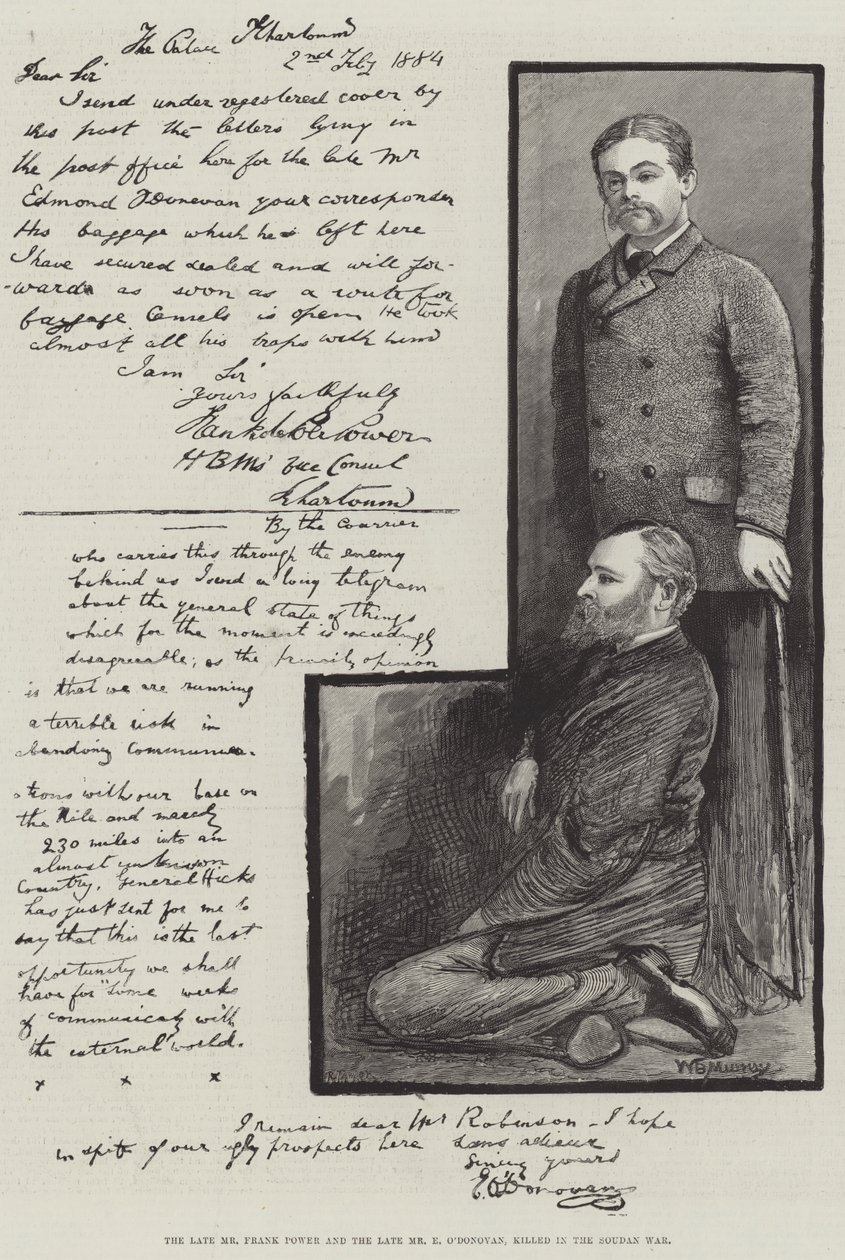 The Palace Khartoum
2nd Feby 1884
Dear Sir
I send under regestered cover by
this post the letters lying in
the post office here for the late Mr
Edmond O'Donevan your corresponder
His baggage which he left here
I have secured sealed and will for-
-ward as soon as a route for
baggage Camels is open He took
almost all his traps with him
I am Sir
yours faithfully
Frank Power
HBMs Vice Consul
Khartoum
By the Courrier
who carries this through the enemy
behind us I send a long telegram
about the general state of things
which for the moment is exceedingly
disagreeable; as the opinion
is that we are running
a terrible risk in
abandong Communica-
ations with our base on
the Nile and
230 miles into an
almost unknown
Country. General Hicks
has just sent for me to
say that this is the last
opportunity we shall
have for "some weeks
of communicatg with
the external world.
x x x
I remain dear Mr Robinson - I hope
in spite of our ugly prospects here sans adieux
yours
E O'Donovan
WB Murray
THE LATE MR. FRANK POWER AND THE LATE MR. E. O'DONOVAN, KILLED IN THE SOUDAN WAR.